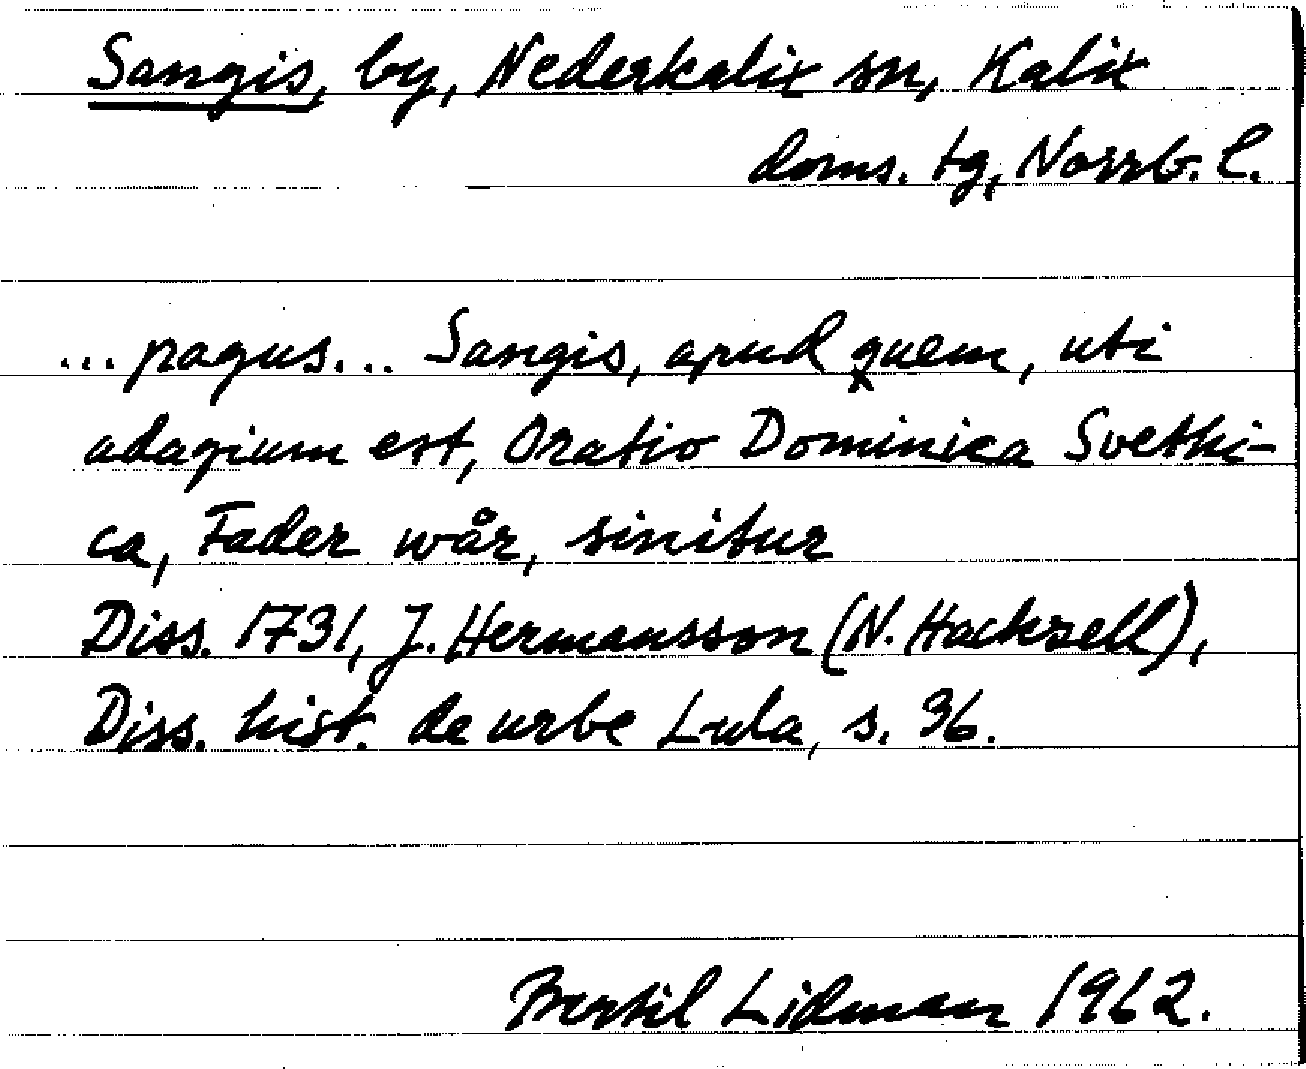 Sangis, by, Nederkalix sn, Kalix
doms. tg, Norrb. l.
... pagus... Sangis, apud quem, uti
adagium est, Oratio Dominica Svethi-
ca, Fader wår, sinitur
Diss. 1731, J. Hermansson (N. Hackzell),
Diss. hist. de urbe Lula, s. 36.
Bertil Lidman 1962.